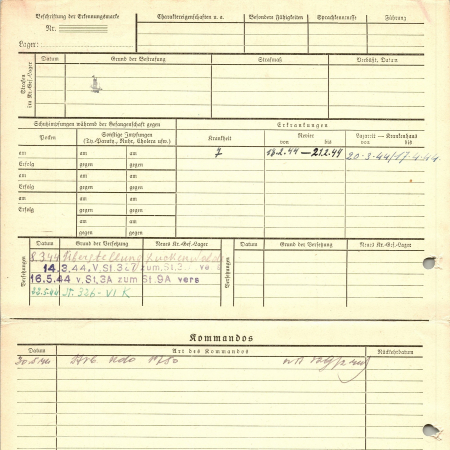 Beschriftung der Erkennungsmarke
Nr.
Lager:
Charaktereigenschaften u. a.
Besondere Fähigkeiten
Sprachkenntnisse
Führung
Strafen im Kr.-Gef.-Lager
Datum
Grund der Bestrafung
Strafmaß
Verbüßt, Datum
Schutzimpfungen während der Gefangenschaft gegen
Erkrankungen
Pocken
Sonstige Impfungen
(Ty.-Paraty., Ruhr, Cholera usw.)
Krankheit
Revier
von bis
Lazarett — Krankenhaus
von bis
am am am
7 21.2.44 20-3-44/17-4-44
Erfolg gegen gegen
am am am
Erfolg gegen gegen
am am am
Erfolg gegen gegen
am am
gegen gegen
Versetzungen
Datum
Grund der Versetzung
Neues Kr.-Gef.-Lager
Versetzungen
Datum
Grund der Versetzung
Neues Kr.-Gef.-Lager
8.3.44
14.3.44 V. St. 3 zum St. 3 vers
16.5.44 V. St. 3A zum St. 9A vers
Kommandos
Datum
Art des Kommandos
Rückkehrdatum